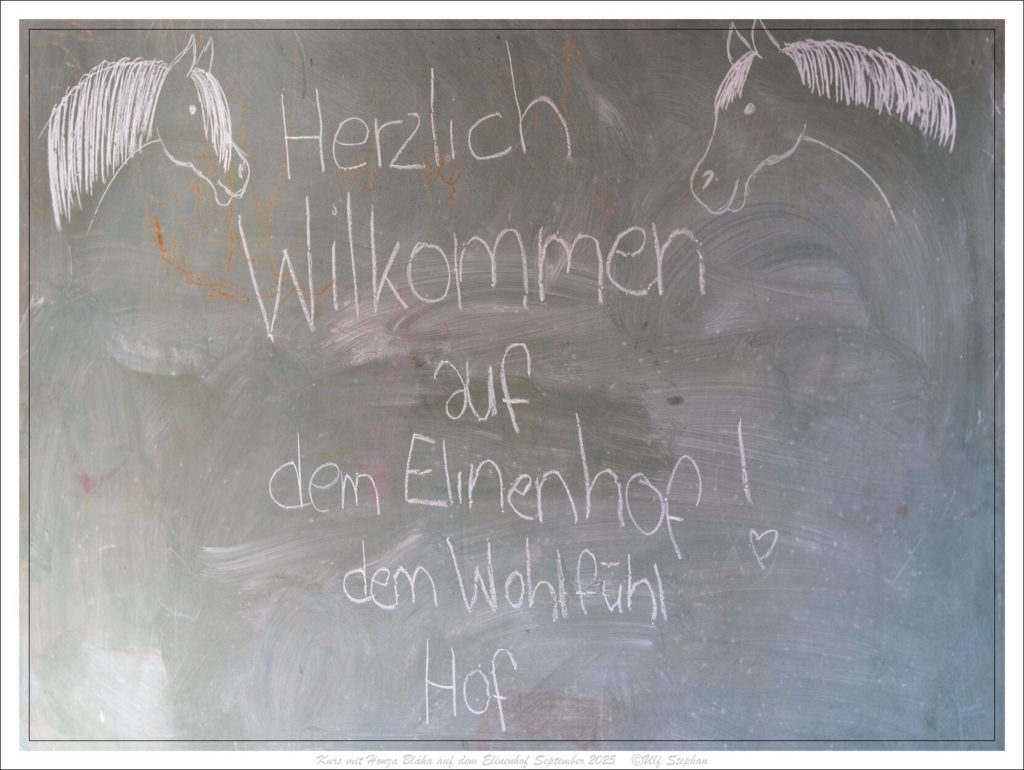 Herzlich
Wilkommen
auf
dem Elinenhof!
dem Wohlfühl
Hof
Kurs mit Honza Bláha auf dem Elinenhof September 2025 ©Ulf Stephan